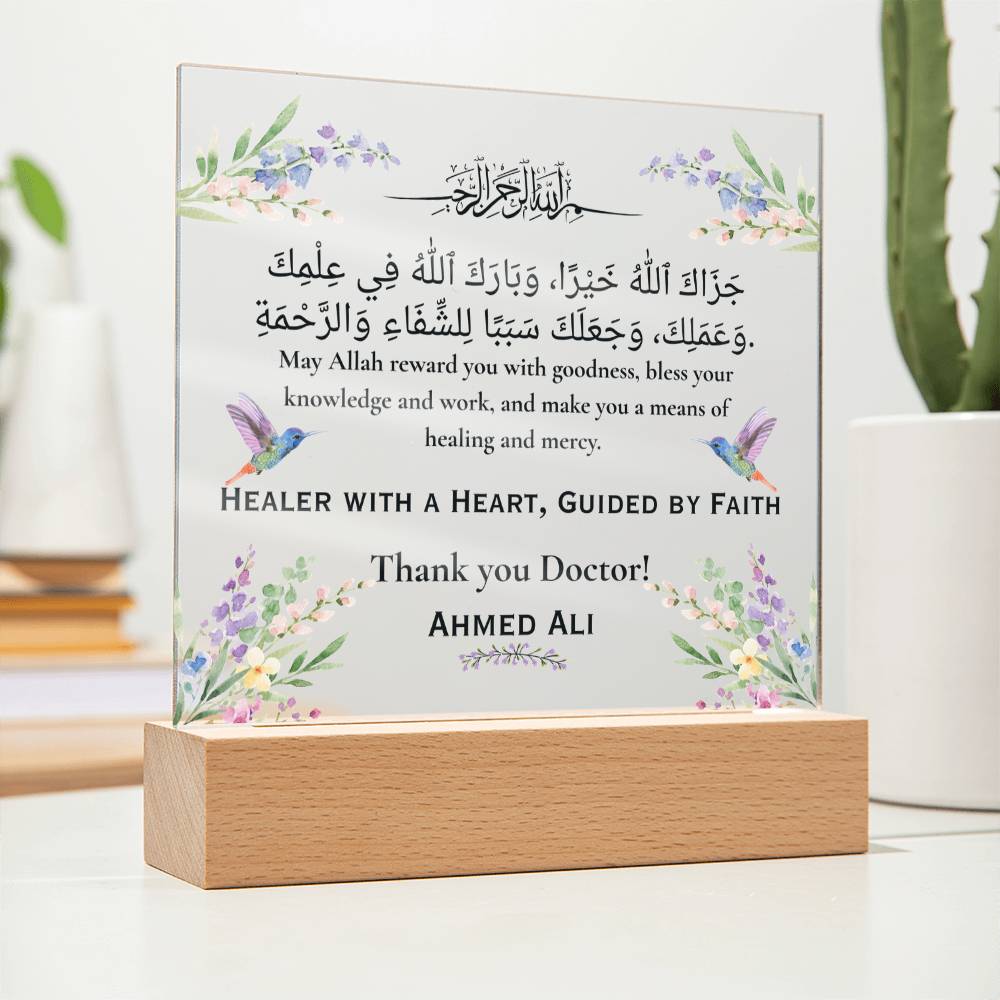 بسم الله الرحمن الرحيم
جَزَاكَ ٱللّٰهُ خَيْرًا، وَبَارَكَ ٱللّٰهُ فِي عِلْمِكَ
وَعَمَلِكَ، وَجَعَلَكَ سَبَبًا لِلشِّفَاءِ وَالرَّحْمَةِ.
May Allah reward you with goodness, bless your
knowledge and work, and make you a means of
healing and mercy.
Healer with a Heart, Guided by Faith
Thank you Doctor!
Ahmed Ali